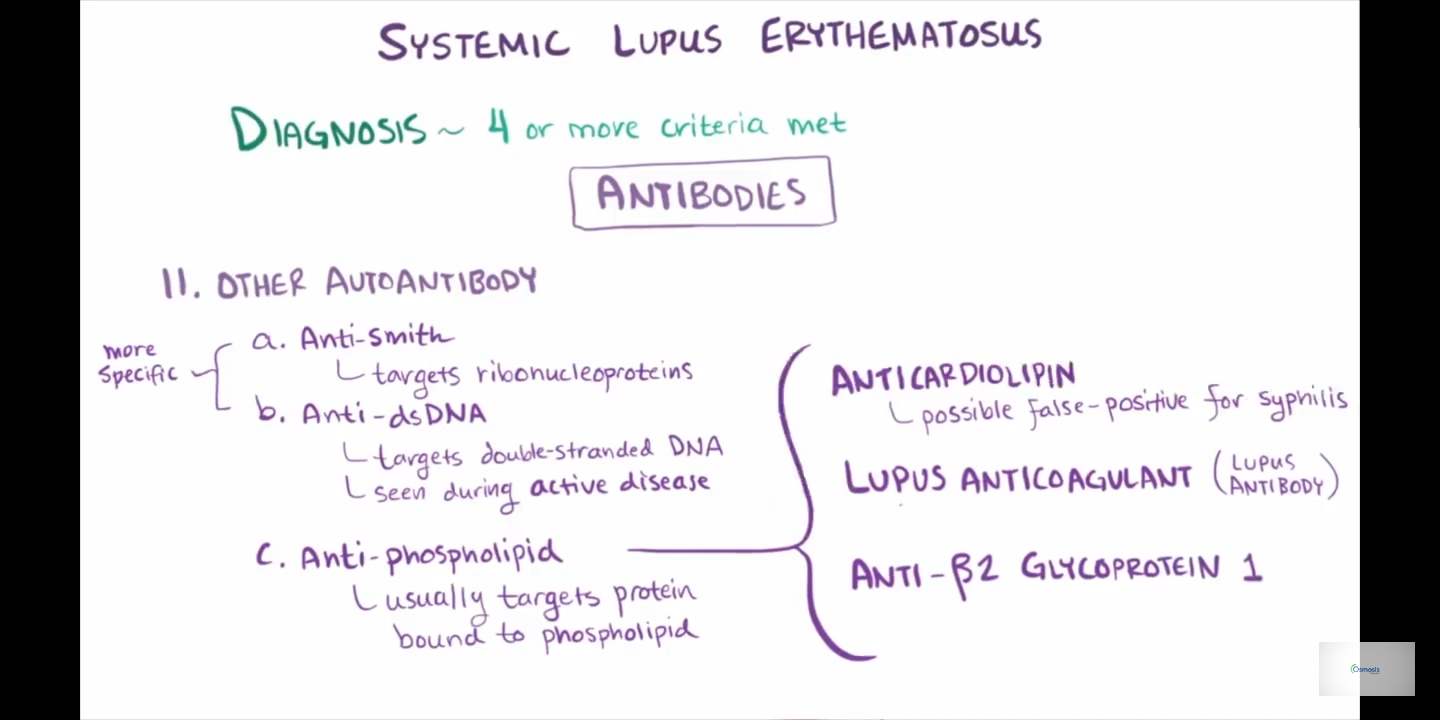 SYSTEMIC LUPUS ERYTHEMATOSUS
DIAGNOSIS ~ 4 or more criteria met
ANTIBODIES
11. OTHER AUTOANTIBODY
more
specific
a. Anti-smith
targets ribonucleoproteins
b. Anti-dsDNA
targets double-stranded DNA
seen during active disease
c. Anti-phospholipid
usually targets protein
bound to phospholipid
ANTICARDIOLIPIN
possible false-positive for syphilis
LUPUS ANTICOAGULANT (LUPUS
ANTIBODY)
ANTI-β2 GLYCOPROTEIN 1
Osmosis